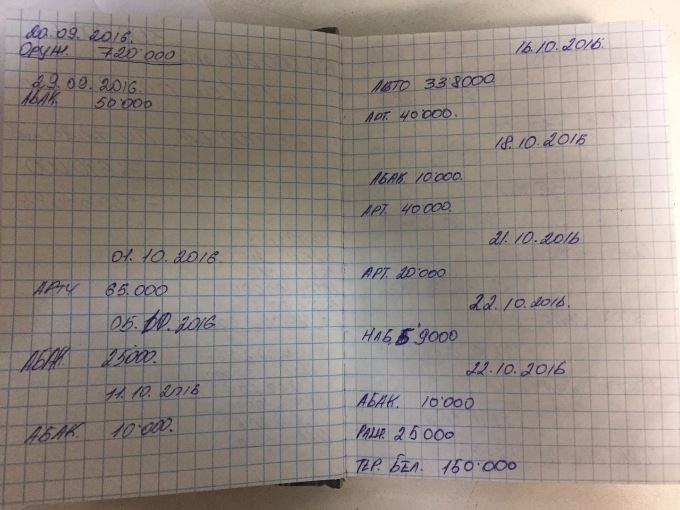 20.09.2016.
ОРУЖ. 720'000
29.09.2016.
АБАК 50'000
01.10.2016
АРТЧ 65.000
05.10.2016
АБАК 25'000.
11.10.2016
АБАК. 10'000.
16.10.2016.
АВТО 338000
АРТ. 40'000.
18.10.2016
АБАК. 10'000.
АРТ. 40'000.
21.10.2016
АРТ. 20'000
22.10.2016.
НАБ. 59000
22.10.2016
АБАК. 10'000
25000
ТЕР. БЕЛ. 150'000